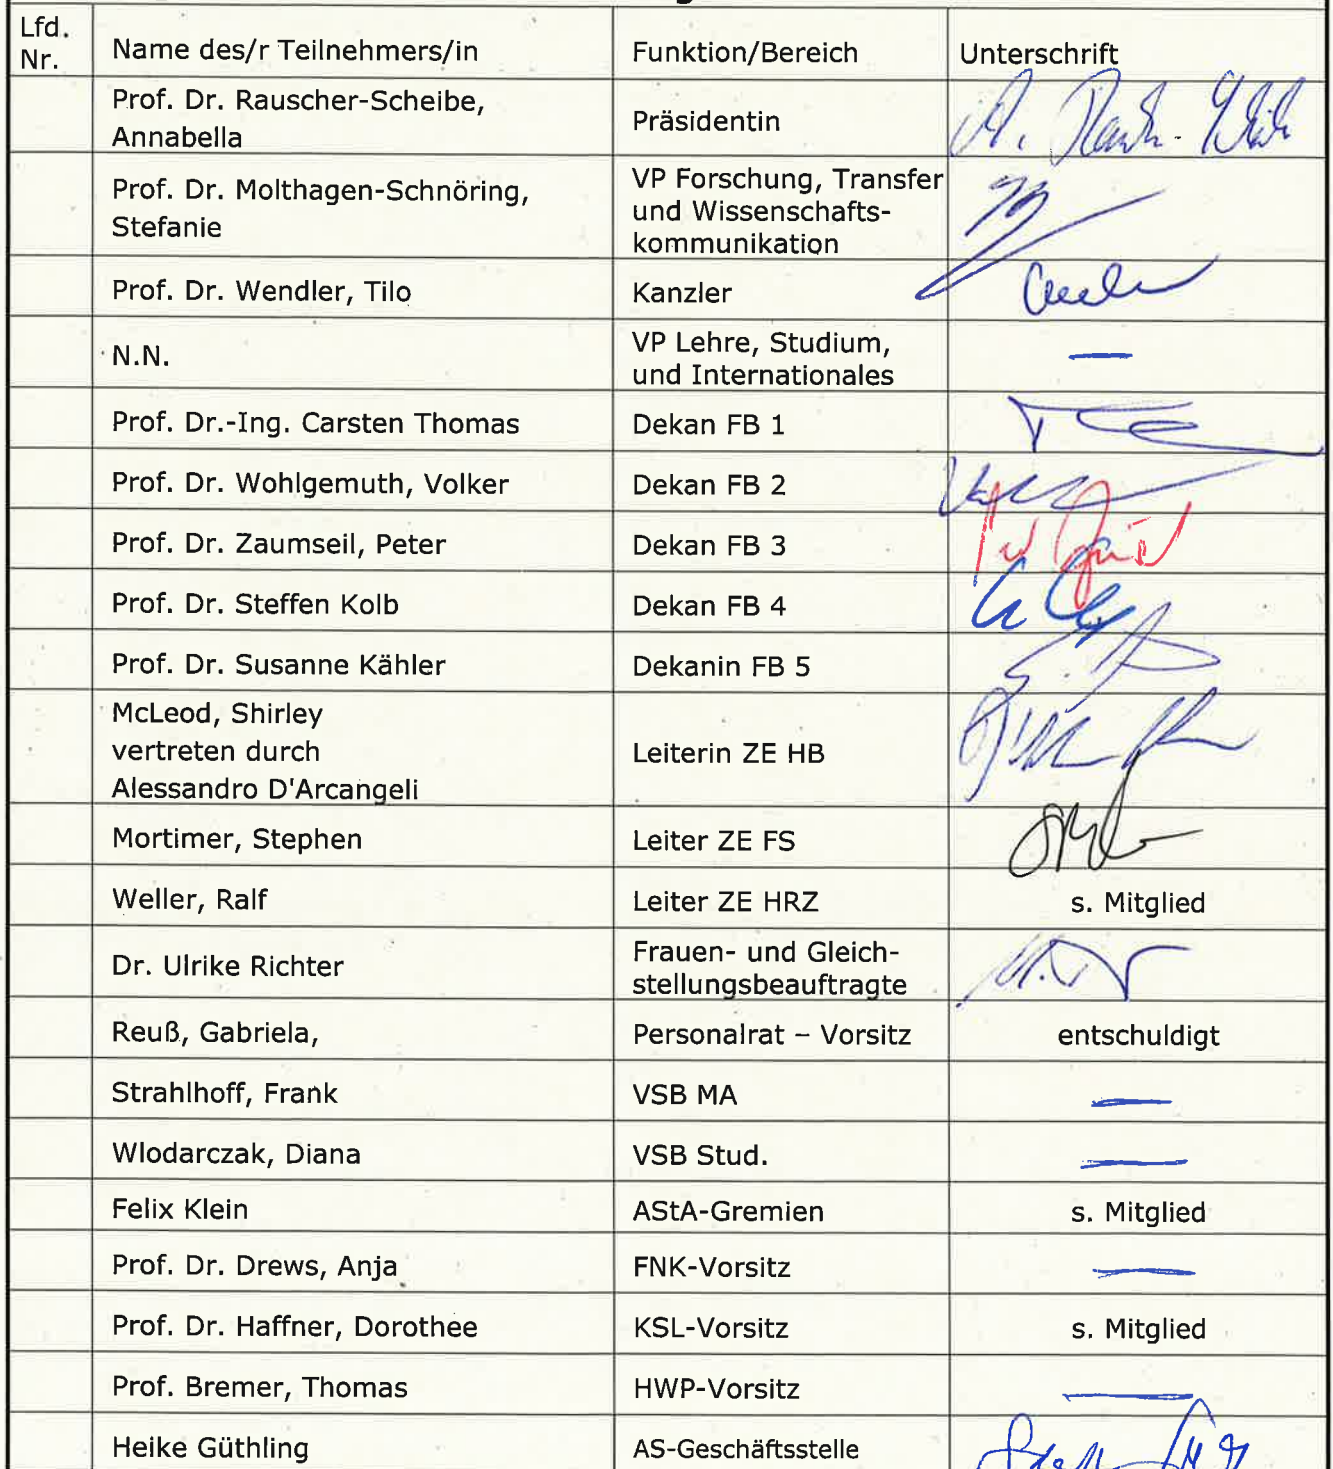 Lfd.
Nr.
Name des/r Teilnehmers/in
Funktion/Bereich
Unterschrift
Prof. Dr. Rauscher-Scheibe,
Annabella
Präsidentin
Prof. Dr. Molthagen-Schnöring,
Stefanie
VP Forschung, Transfer
und Wissenschafts-
kommunikation
Prof. Dr. Wendler, Tilo
Kanzler
N.N.
VP Lehre, Studium,
und Internationales
Prof. Dr.-Ing. Carsten Thomas
Dekan FB 1
Prof. Dr. Wohlgemuth, Volker
Dekan FB 2
Prof. Dr. Zaumseil, Peter
Dekan FB 3
Prof. Dr. Steffen Kolb
Dekan FB 4
Prof. Dr. Susanne Kähler
Dekanin FB 5
McLeod, Shirley
vertreten durch
Alessandro D'Arcangeli
Leiterin ZE HB
Mortimer, Stephen
Leiter ZE FS
Weller, Ralf
Leiter ZE HRZ
s. Mitglied
Dr. Ulrike Richter
Frauen- und Gleich-
stellungsbeauftragte
Reuß, Gabriela,
Personalrat – Vorsitz
entschuldigt
Strahlhoff, Frank
VSB MA
Wlodarczak, Diana
VSB Stud.
Felix Klein
AStA-Gremien
s. Mitglied
Prof. Dr. Drews, Anja
FNK-Vorsitz
Prof. Dr. Haffner, Dorothee
KSL-Vorsitz
s. Mitglied
Prof. Bremer, Thomas
HWP-Vorsitz
Heike Güthling
AS-Geschäftsstelle